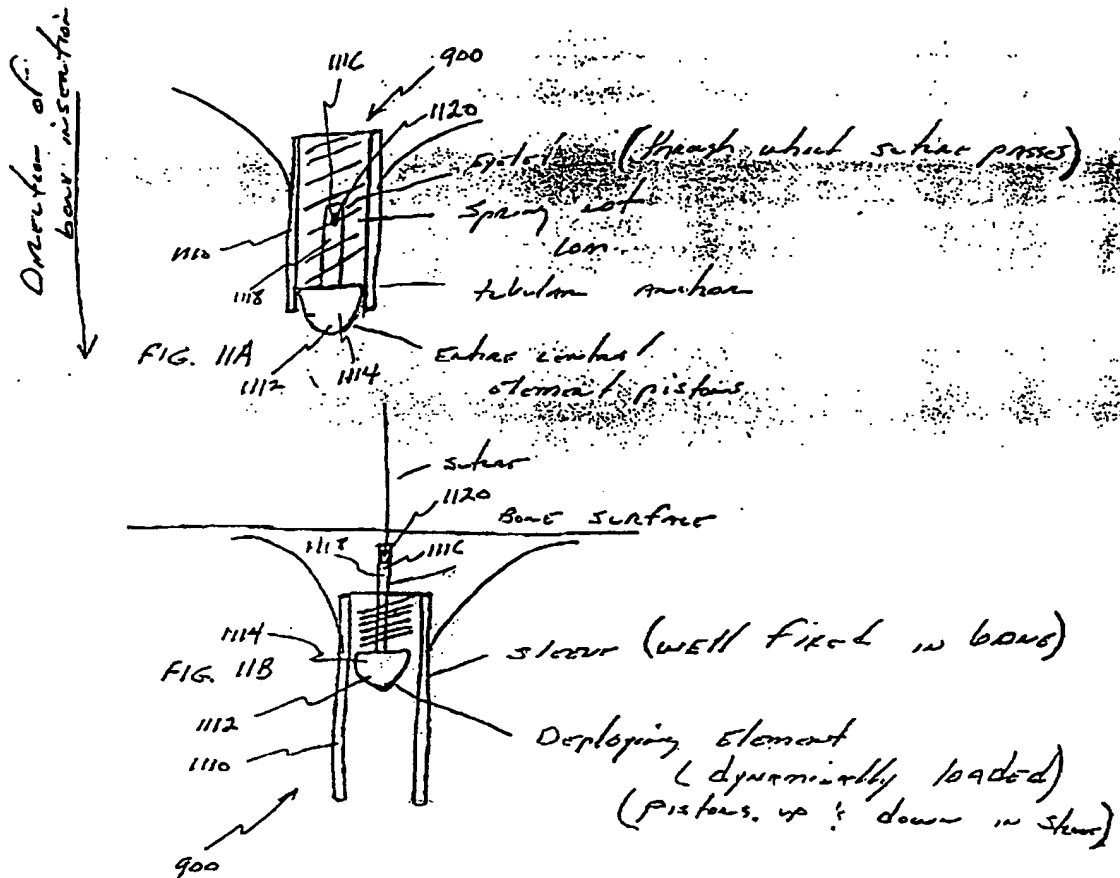 Direction of
bone insertion
1116
900
1120
Eyelet (through which suture passes)
Spring not
1110
1118
tubular Anchor
FIG. 11A
1112
1114
Entire central
element pistons
suture
1120
Bone surface
1118
1116
1114
sleeve (well fixed in bone)
FIG. 11B
1112
1110
Deploying Element
(dynamically loaded)
(pistons up & down in sleeve)
900